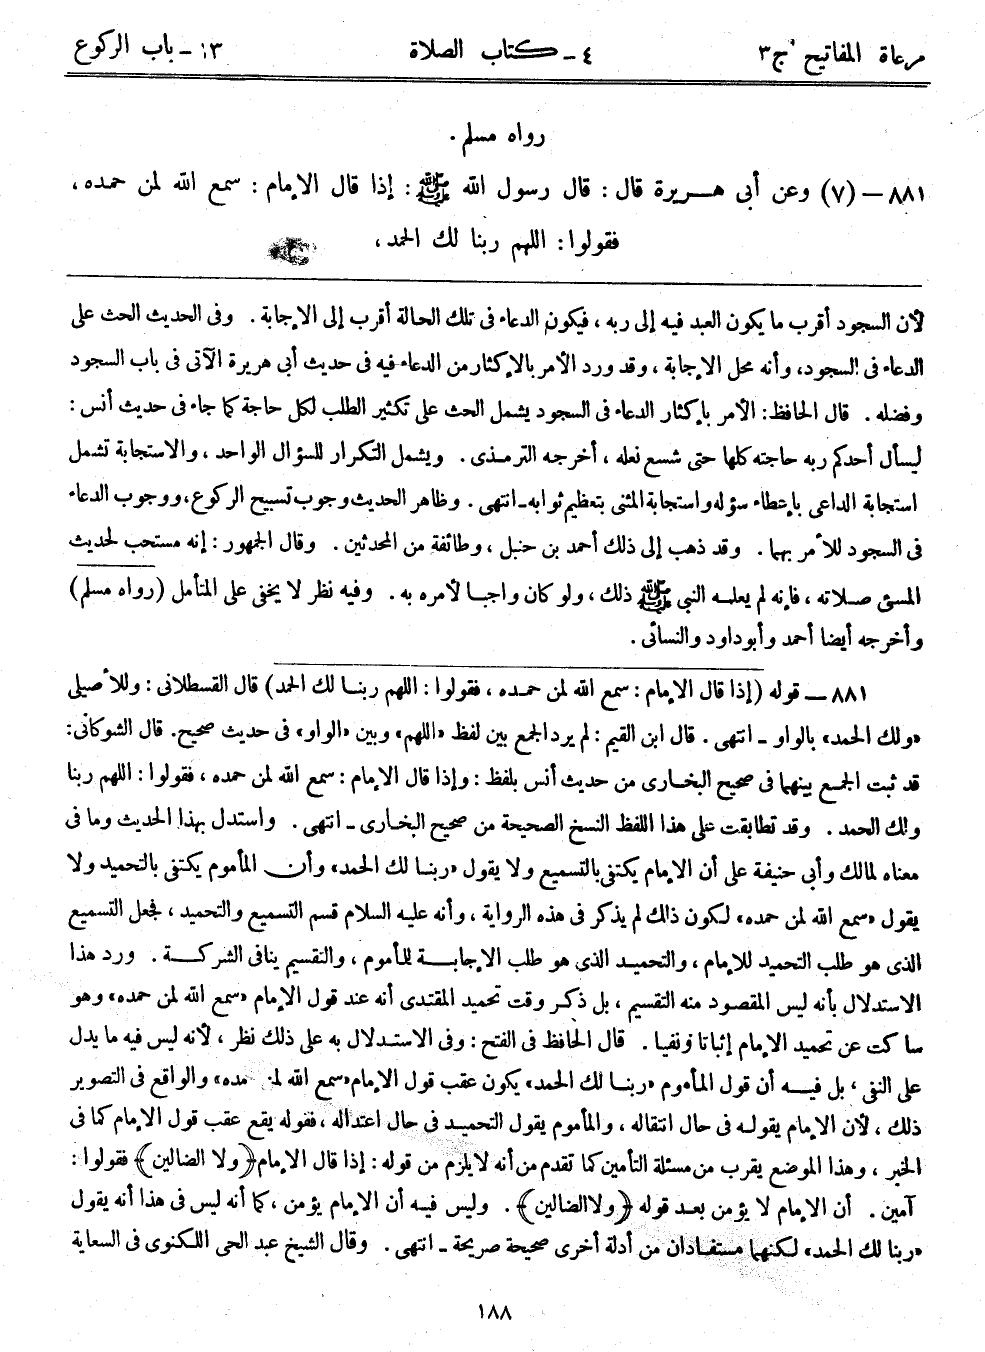 مرعاة المفاتيح ج٣
٤ - كتاب الصلاة
١٣ - باب الركوع
رواه مسلم .
٨٨١ – (٧) وعن أبى هريرة قال : قال رسول الله ﷺ : إذا قال الإمام : سمع الله لمن حمده ،
فقولوا : اللهم ربنا لك الحمد ،
لأن السجود أقرب ما يكون العبد فيه إلى ربه ، فيكون الدعاء فى تلك الحالة أقرب إلى الإجابة . وفى الحديث الحث على
الدعاء فى السجود ، وأنه محل الإجابة ، وقد ورد الأمر بالإكثار من الدعاء فيه فى حديث أبى هريرة الآتى فى باب السجود
وفضله . قال الحافظ : الأمر بإكثار الدعاء فى السجود يشمل الحث على تكثير الطلب لكل حاجة كما جاء فى حديث أنس :
ليسأل أحدكم ربه حاجته كلها حتى شسع نعله ، أخرجه الترمذى . ويشمل التكرار للسؤال الواحد ، والاستجابة تشمل
استجابة الداعى بإعطاء سؤله واستجابة المثنى بتعظيم ثوابه - انتهى . وظاهر الحديث وجوب تسبيح الركوع ، ووجوب الدعاء
فى السجود للأمر بهما . وقد ذهب إلى ذلك أحمد بن حنبل ، وطائفة من المحدثين . وقال الجمهور : إنه مستحب لحديث
المسئ صلاته ، فإنه لم يعلمه النبى ﷺ ذلك ، ولو كان واجبا لأمره به . وفيه نظر لا يخفى على المتأمل (رواه مسلم)
وأخرجه أيضا أحمد وأبوداود والنسائى .
٨٨١ – قوله (إذا قال الإمام : سمع الله لمن حمده ، فقولوا : اللهم ربنا لك الحمد) قال القسطلانى : وللأصيلى
«ولك الحمد» بالواو - انتهى . قال ابن القيم : لم يرد الجمع بين لفظ «اللهم» وبين «الواو» فى حديث صحيح . قال الشوكانى :
قد ثبت الجمع بينهما فى صحيح البخارى من حديث أنس بلفظ : وإذا قال الإمام : سمع الله لمن حمده ، فقولوا : اللهم ربنا
ولك الحمد . وقد تطابقت على هذا اللفظ النسخ الصحيحة من صحيح البخارى - انتهى . واستدل بهذا الحديث وما فى
معناه لمالك وأبى حنيفة على أن الإمام يكتفى بالتسميع ولا يقول «ربنا لك الحمد» وأن المأموم يكتفى بالتحميد ولا
يقول «سمع الله لمن حمده» لكون ذالك لم يذكر فى هذه الرواية ، وأنه عليه السلام قسم التسميع والتحميد ، فجعل التسميع
الذى هو طلب التحميد للإمام ، والتحميد الذى هو طلب الإجابة للمأموم ، والتقسيم ينافى الشركة . ورد هذا
الاستدلال بأنه ليس المقصود منه التقسيم ، بل ذكر وقت تحميد المقتدى أنه عند قول الإمام «سمع الله لمن حمده» وهو
ساكت عن تحميد الإمام إثباتا ونفيا . قال الحافظ فى الفتح : وفى الاستدلال به على ذلك نظر ، لأنه ليس فيه ما يدل
على النفى ، بل فيه أن قول المأموم «ربنا لك الحمد» يكون عقب قول الإمام «سمع الله لمن حمده» والواقع فى التصوير
ذلك ، لأن الإمام يقوله فى حال انتقاله ، والمأموم يقول التحميد فى حال اعتداله ، فقوله يقع عقب قول الإمام كما فى
الخبر ، وهذا الموضع يقرب من مسئلة التأمين كما تقدم من أنه لا يلزم من قوله : إذا قال الإمام ﴿ولا الضالين﴾ فقولوا :
آمين . أن الإمام لا يؤمن بعد قوله ﴿ولا الضالين﴾ . وليس فيه أن الإمام يؤمن ، كما أنه ليس فى هذا أنه يقول
«ربنا لك الحمد» لكنهما مستفادان من أدلة أخرى صحيحة صريحة - انتهى . وقال الشيخ عبد الحى اللكنوى فى السعاية
١٨٨